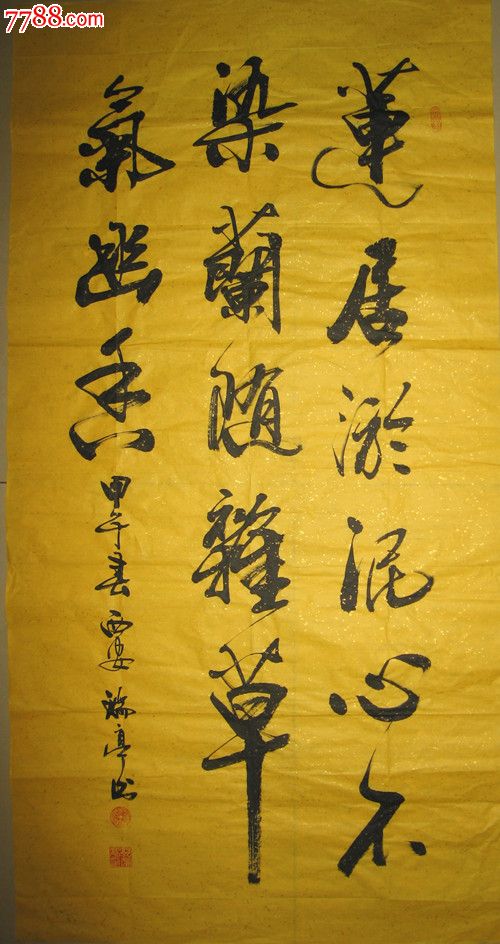 7788.com
蓮居淤泥心不
染蘭随雜草
氣幽香
甲午春西安瑞亭书